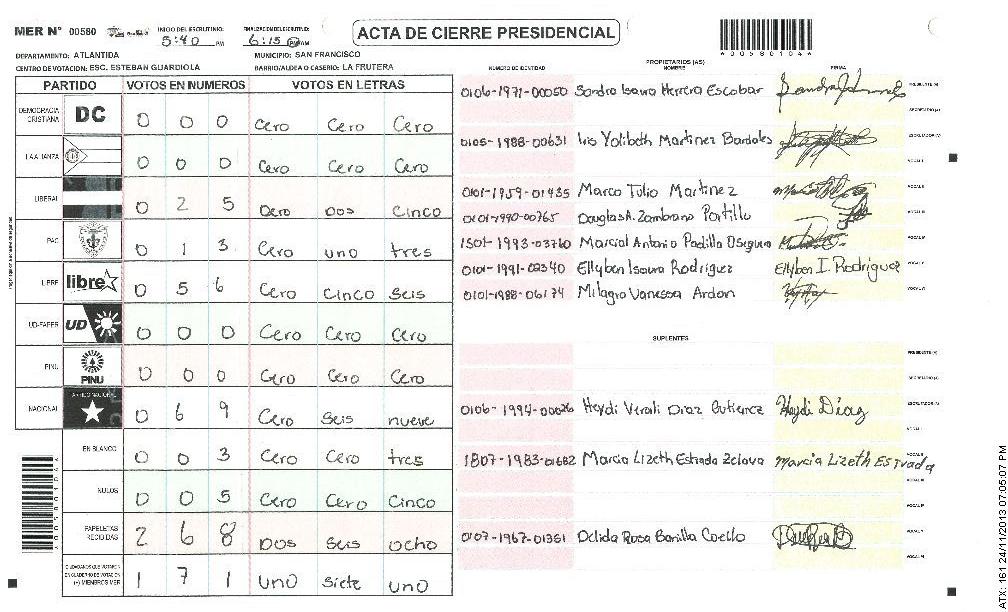 MER N° 00580 INICIO DEL ESCRUTINIO: 5:40 PM FINALIZACION ESCRUTINIO: 6:15 PM AM
ACTA DE CIERRE PRESIDENCIAL
A005801044
DEPARTAMENTO: ATLANTIDA MUNICIPIO: SAN FRANCISCO
CENTRO DE VOTACION: ESC. ESTEBAN GUARDIOLA BARRIO/ALDEA O CASERIO: LA FRUTERA
PARTIDO VOTOS EN NUMEROS VOTOS EN LETRAS
DEMOCRACIA CRISTIANA DC 0 0 0 Cero Cero Cero
LA ALIANZA 0 0 0 Cero Cero Cero
LIBERAL 0 2 5 Cero Dos Cinco
PAC 0 1 3 Cero uno tres
LIBRE libre 0 5 6 Cero Cinco Seis
UD-FAPER UD 0 0 0 Cero Cero Cero
PINU PINU 0 0 0 Cero Cero Cero
NACIONAL 0 6 9 Cero Seis nueve
EN BLANCO 0 0 3 Cero Cero tres
NULOS 0 0 5 Cero Cero Cinco
PAPELETAS RECIBIDAS 2 6 8 Dos Seis ocho
CIUDADANOS QUE VOTARON EN CUADERNO DE VOTACION (+) MIEMBROS MER 1 7 1 uno Siete uno
PROPIETARIOS (AS)
NUMERO DE IDENTIDAD NOMBRE FIRMA
0106-1971-00050 Sandra Isaura Herrera Escobar PRESIDENTE (A)
SECRETARIO (A)
0105-1988-00631 Iris Yolibeth Martinez Bardales ESCRUTADOR (A)
VOCAL I
0101-1959-01435 Marco Tulio Martinez VOCAL II
0101-1990-00765 Douglas A. Zambrano Portillo VOCAL III
1501-1993-03760 Marcial Antonio Padilla Oseguera VOCAL IV
0101-1991-02340 Ellyben Isaura Rodriguez Ellyben I. Rodriguez VOCAL V
0101-1988-06174 Milagro Vanessa Ardon VOCAL VI
SUPLENTES
PRESIDENTE (A)
SECRETARIO (A)
0106-1994-00026 Heydi Verali Diaz Gutierrez Heydi Díaz ESCRUTADOR (A)
VOCAL I
1807-1983-01682 Marcia Lizeth Estrada Zelaya Marcia Lizeth Estrada VOCAL II
VOCAL III
VOCAL IV
0107-1967-01351 Delida Rosa Bonilla Coello VOCAL V
VOCAL VI
ATX: 161 24/11/2013 07:05:07 PM